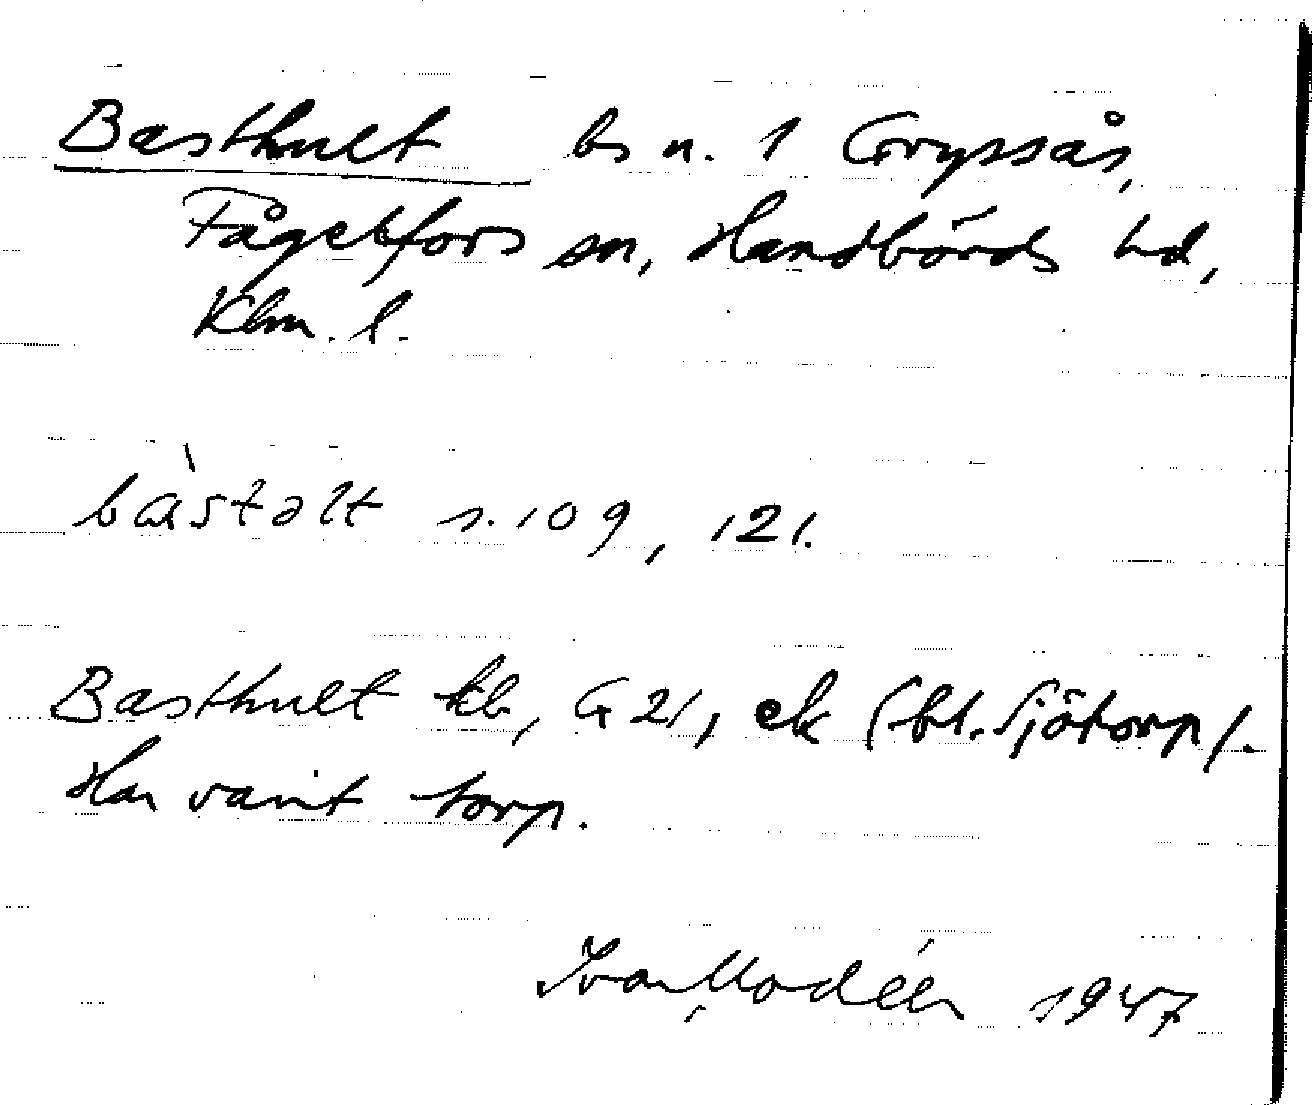 Basthult ls u. 1 Gryssås,
Fågelfors sn, Handbörds hd,
Klm. l.
bàstəlt s. 109, 121.
Basthult kb, G 21, ek (bl. Sjötorp).
Har varit torp.
Ivar Modéer 1947